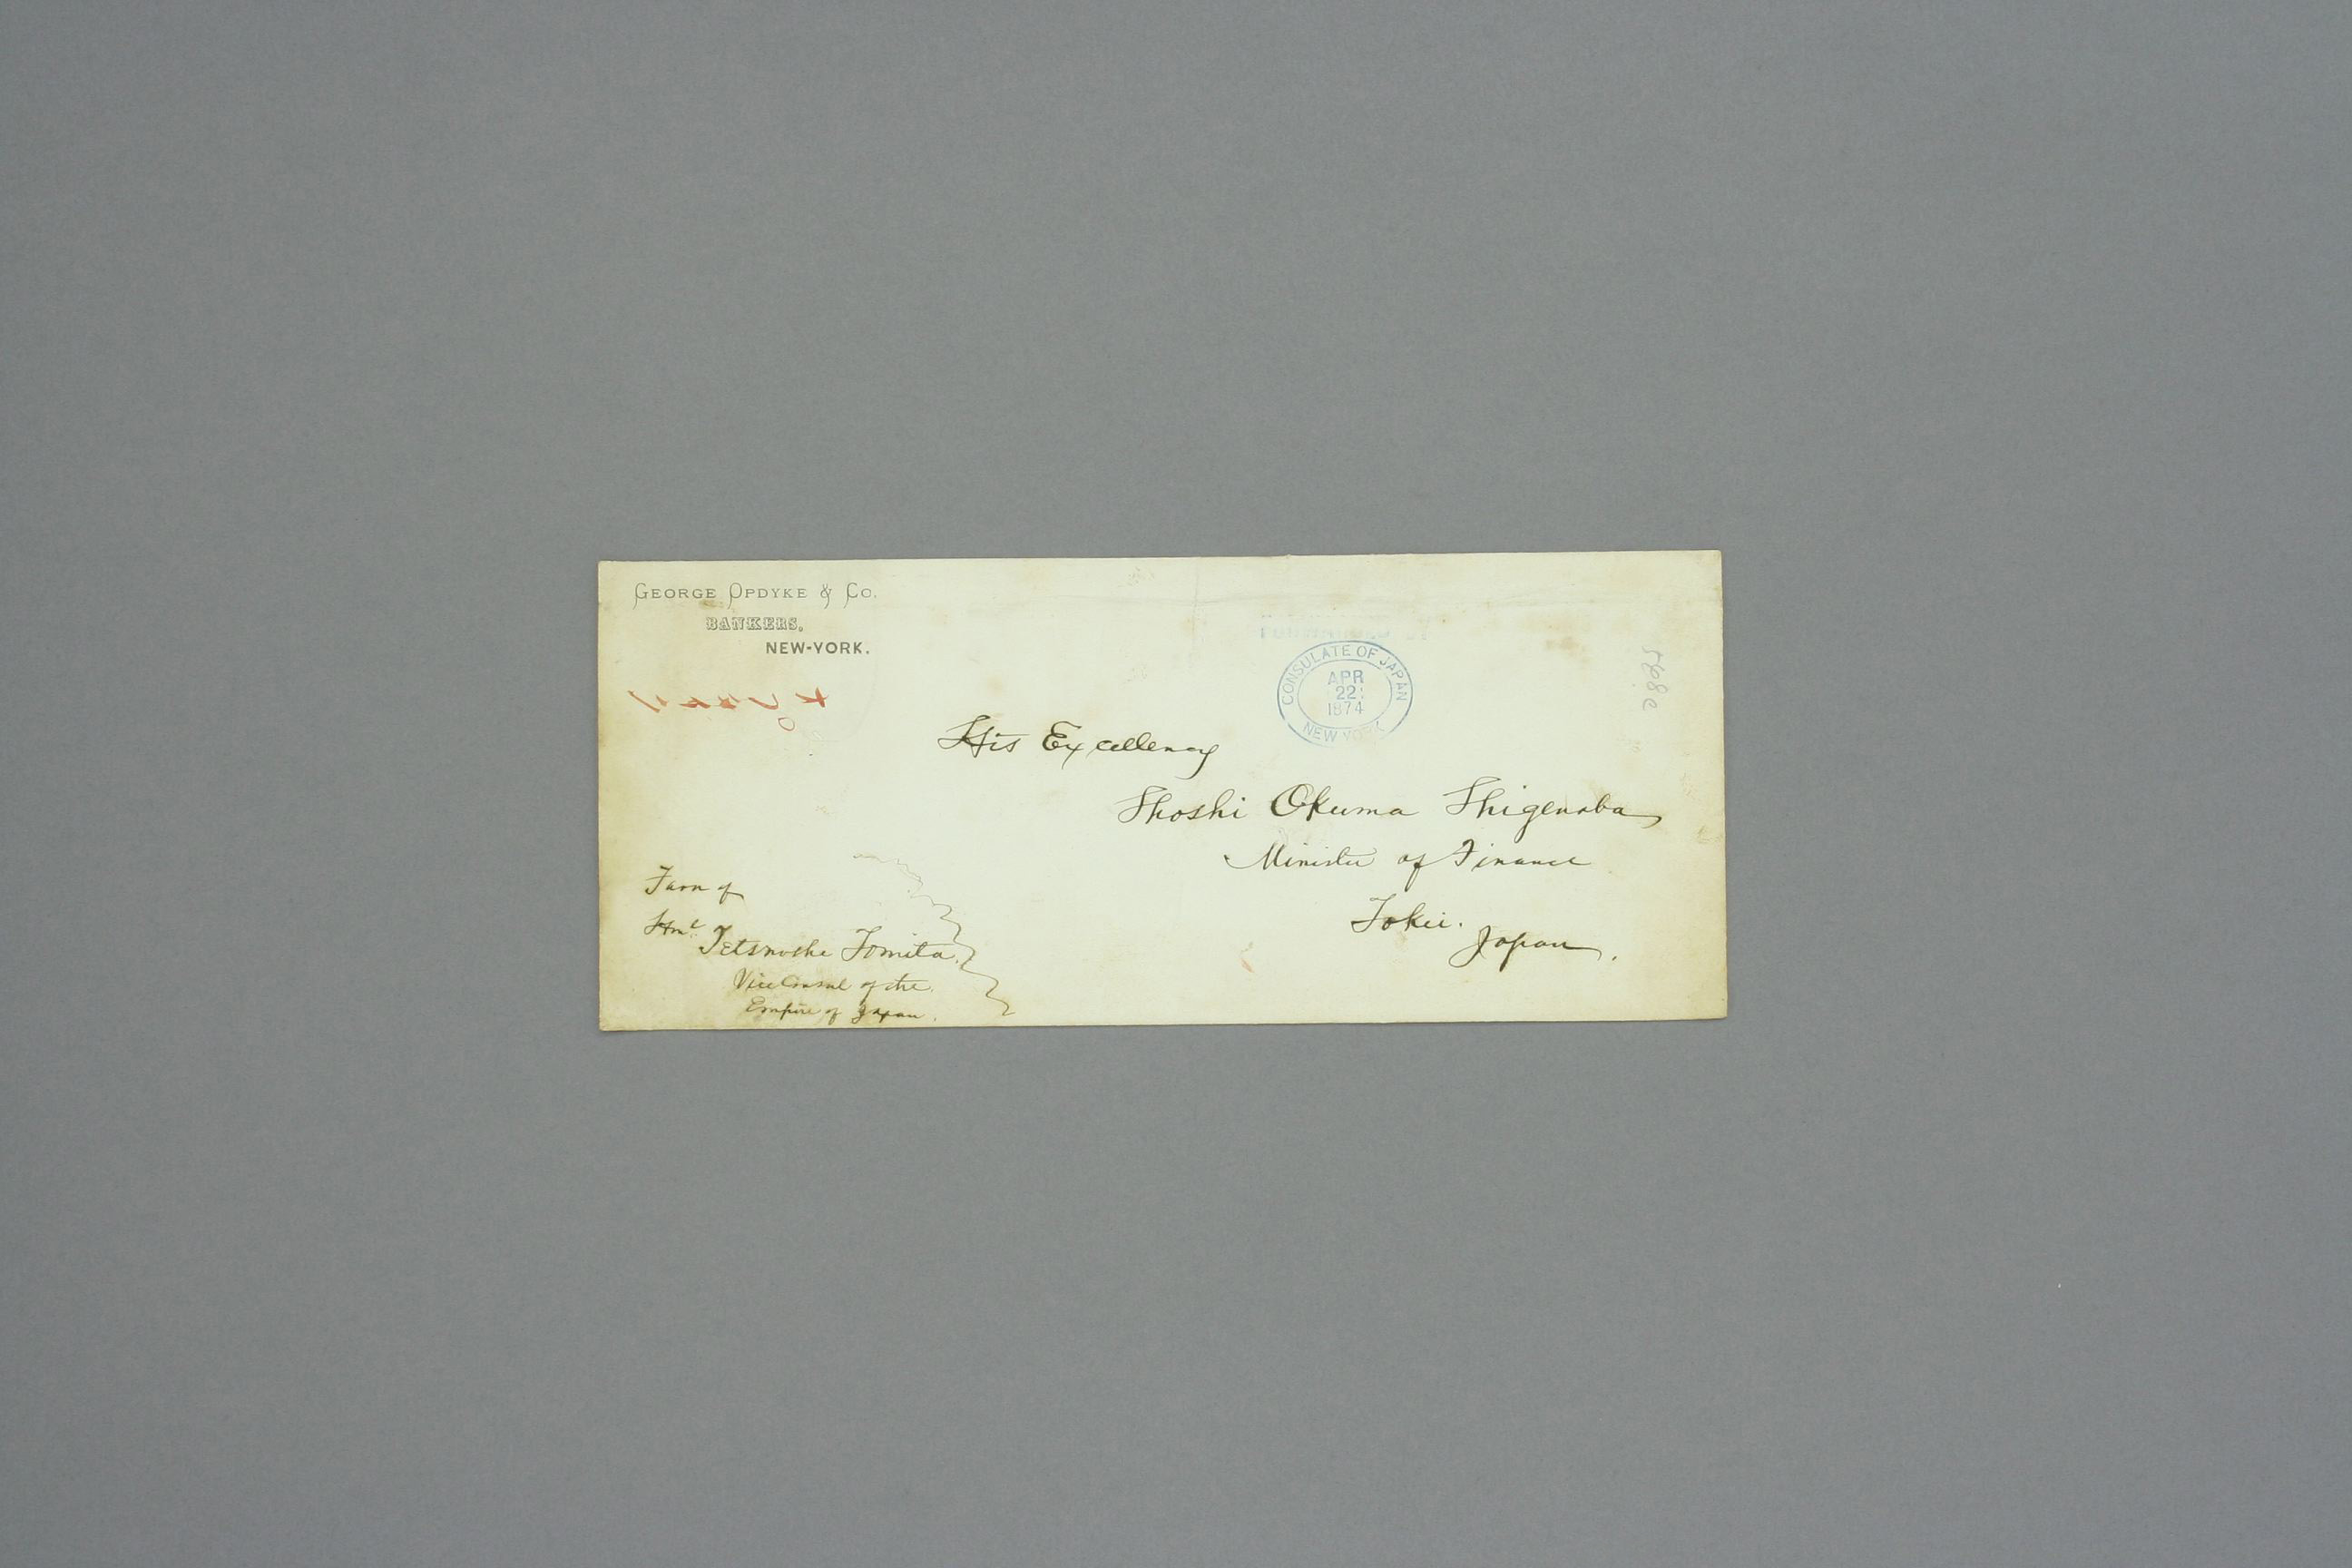 GEORGE OPDYKE & CO.
BANKERS,
NEW-YORK.
FORWARDED BY
CONSULATE OF JAPAN
APR
22
1874
NEW YORK
His Excellency
Shoshi Okuma Shigenoba
Minister of Finance
Tokei.
Japan.
Favr of
Honl
Tetsnoske Tomita.
Vice Consul of the
Empire of Japan.